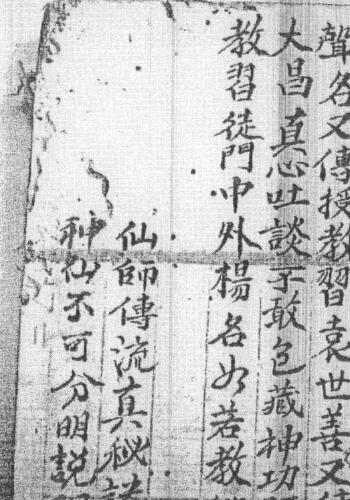 聲名又傳授教習袁世善又
大昌真心吐談不敢包藏神功
教習徒門中外楊名如若教
仙師傳流真秘
神仙不可分明説